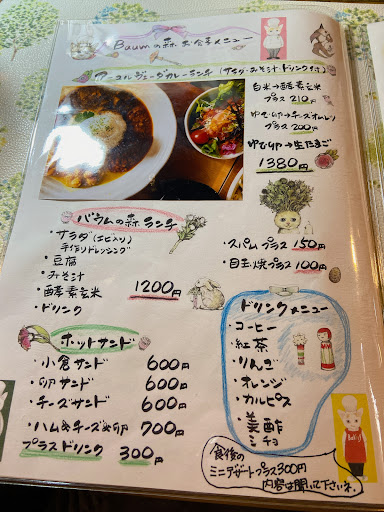 Baumの森 お食事メニュー
アーユルヴェーダカレーランチ(サラダ・みそ汁・ドリンク付)
白米→酵素玄米
プラス210円
ゆで卵→チーズオムレツ
プラス200円
ゆで卵→生たまご
1380円
バウムの森ランチ
・サラダ(エビ入り)
手作りドレッシング
・豆腐
・みそ汁
・酵素玄米
・ドリンク
1200円
・スパムプラス150円
・目玉焼プラス100円
ホットサンド
・小倉サンド 600円
・卵サンド 600円
・チーズサンド 600円
・ハム&チーズ&卵 700円
プラスドリンク 300円
ドリンクメニュー
・コーヒー
・紅茶
・りんご
・オレンジ
・カルピス
・美酢
ミチョ
食後の
ミニデザートプラス300円
内容は聞いて下さいネ。